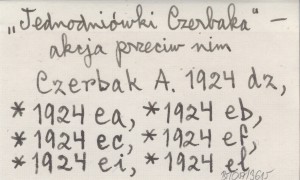 „Jednodniówki Czerbaka” —
akcja przeciw nim
Czerbak A. 1924 dz,
* 1924 ea, * 1924 eb,
* 1924 ec, * 1924 ef,
* 1924 ei, * 1924 el